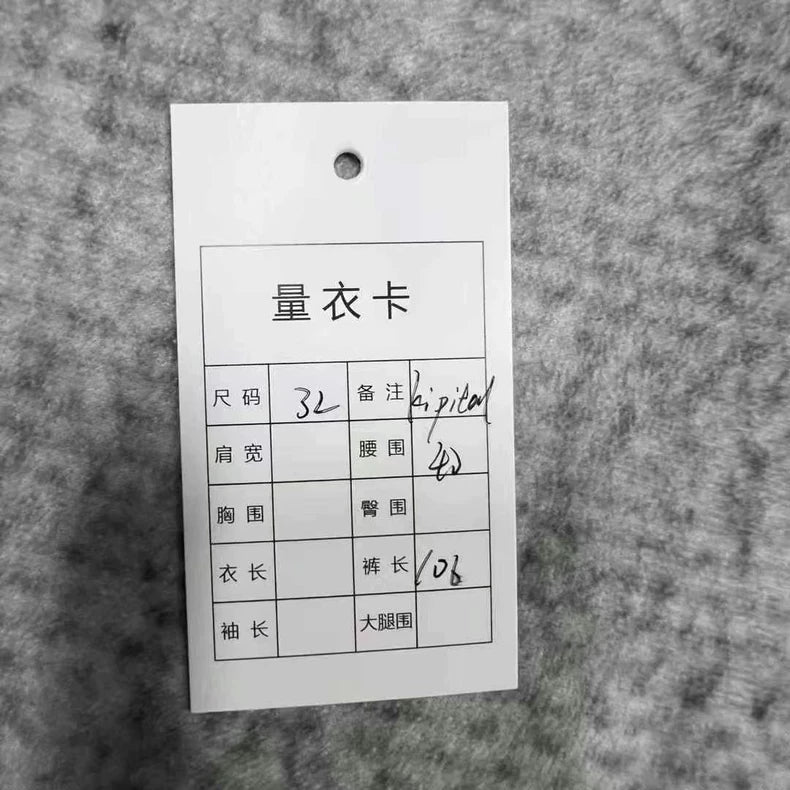 量衣卡
尺码 32 备注 kipital
肩宽 腰围 40
胸围 臀围
衣长 裤长 106
袖长 大腿围